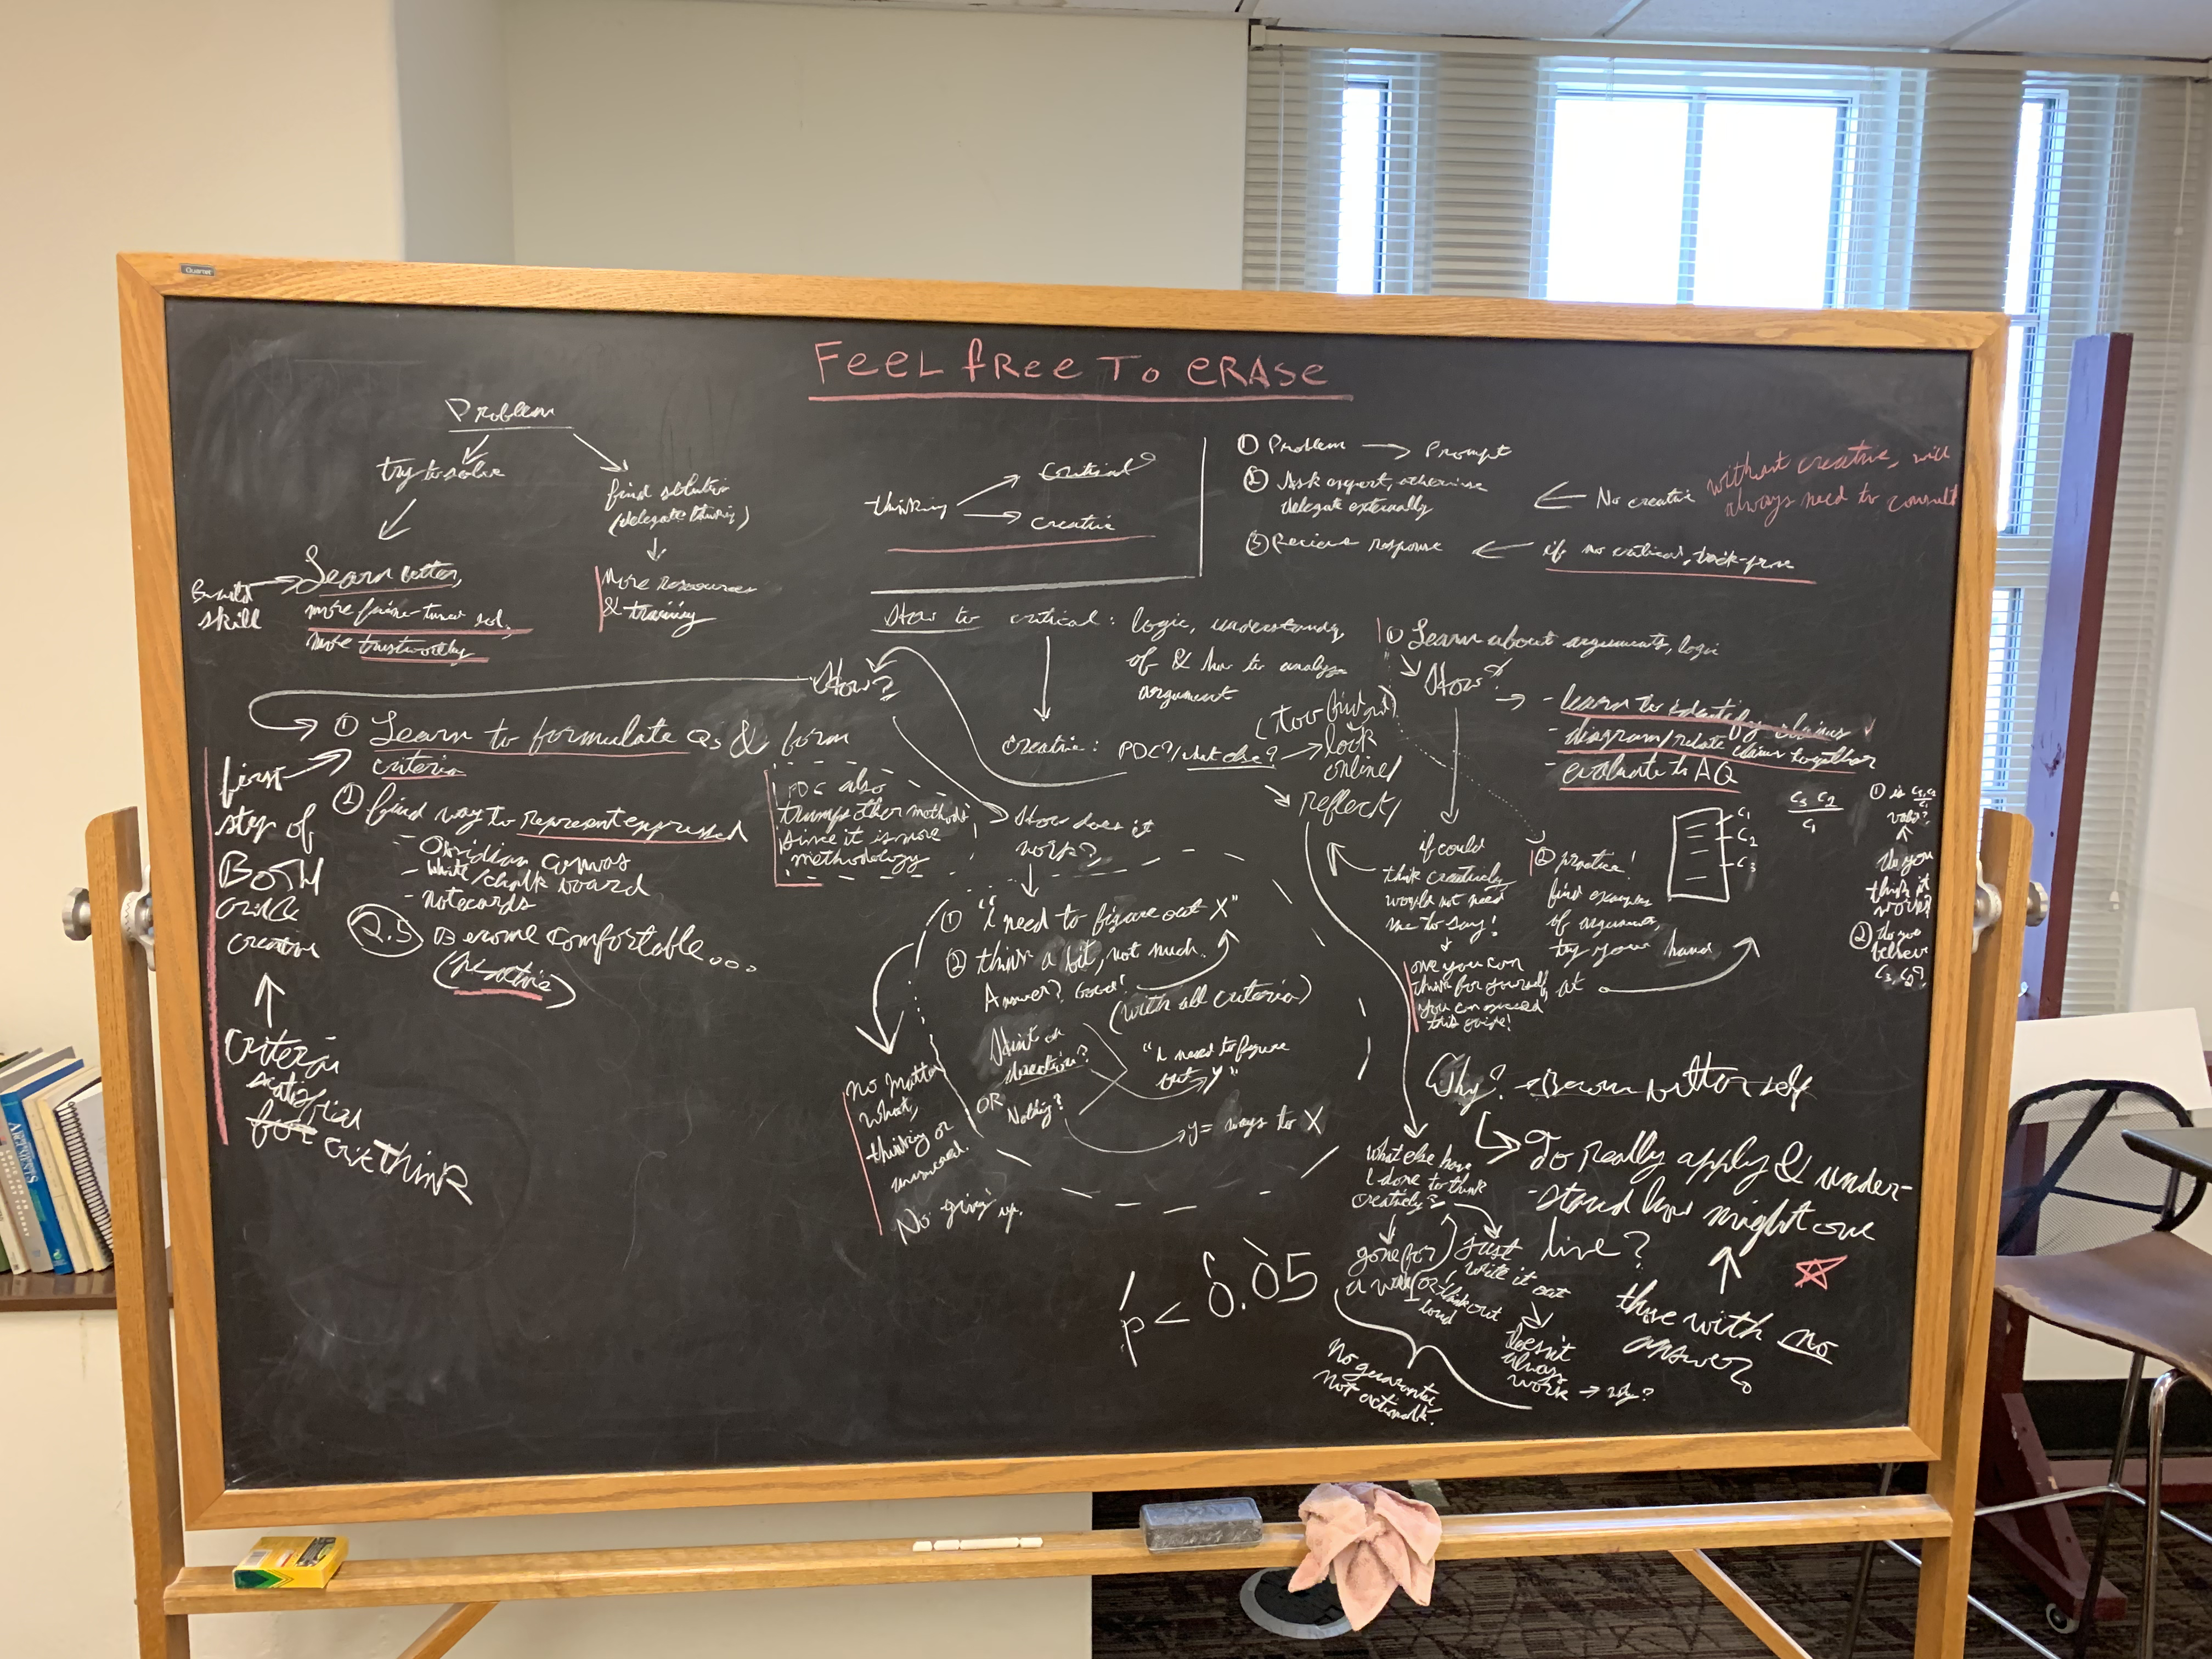 Quartet
FEEL FREE TO ERASE
Problem
try to solve
find solution
(delegate thinking)
Build skill
Learn better,
more fine-tuned sol,
more trustworthy
More resources
& training
thinking
critical
creative
① Problem → Prompt
② Ask expert, otherwise
delegate externally
③ Receive response
No creative
without creative, will
always need to consult
if no critical,
How to critical: logic, understanding
of & how to analyze
argument
creative: PDC?/what else?
look
online/
reflect/
How?
① Learn to formulate Qs & form
criteria
② find way to represent expressed
- Obsidian canvas
- white/chalk board
- notecards
2.5 Become comfortable...
(practice)
first
step of
BOTH
crit &
creative
Criteria
satisfied
for crit think
PDC also
trumps other methods
since it is more
methodology
How does it
work?
① "I need to figure out X"
② think a bit, not much.
Answer? Good!
(with all criteria)
Hint or
direction?
OR Nothing?
"I need to figure
out y"
y = ways to X
no matter
what,
thinking or
No giving up.
p < 0.05
① Learn about arguments, logic
How?
- learn to identify claims
- diagram/relate claims together
- evaluate to AQ
if could
think creatively,
would not need
me to say!
once you can
think for yourself,
you can exceed
this guide!
② practice!
find examples
of arguments,
try your hand
at
C1
C2
C3
C3 C2
C1
① is C3, C2
C1
valid?
Do you
think it
works?
② Do you
believe
C3, C2?
Why? → Become better self
To really apply & under-
stand how might one
live?
those with no
answer?
what else have
I done to think
creatively?
gone for
a walk
just
write it out
or think out
loud
doesn't
always
work → why?
No guarantee,
not actionable.